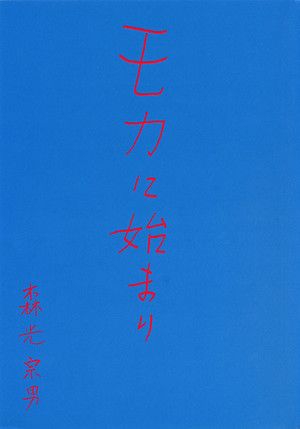 モカに始まり
森光宗男